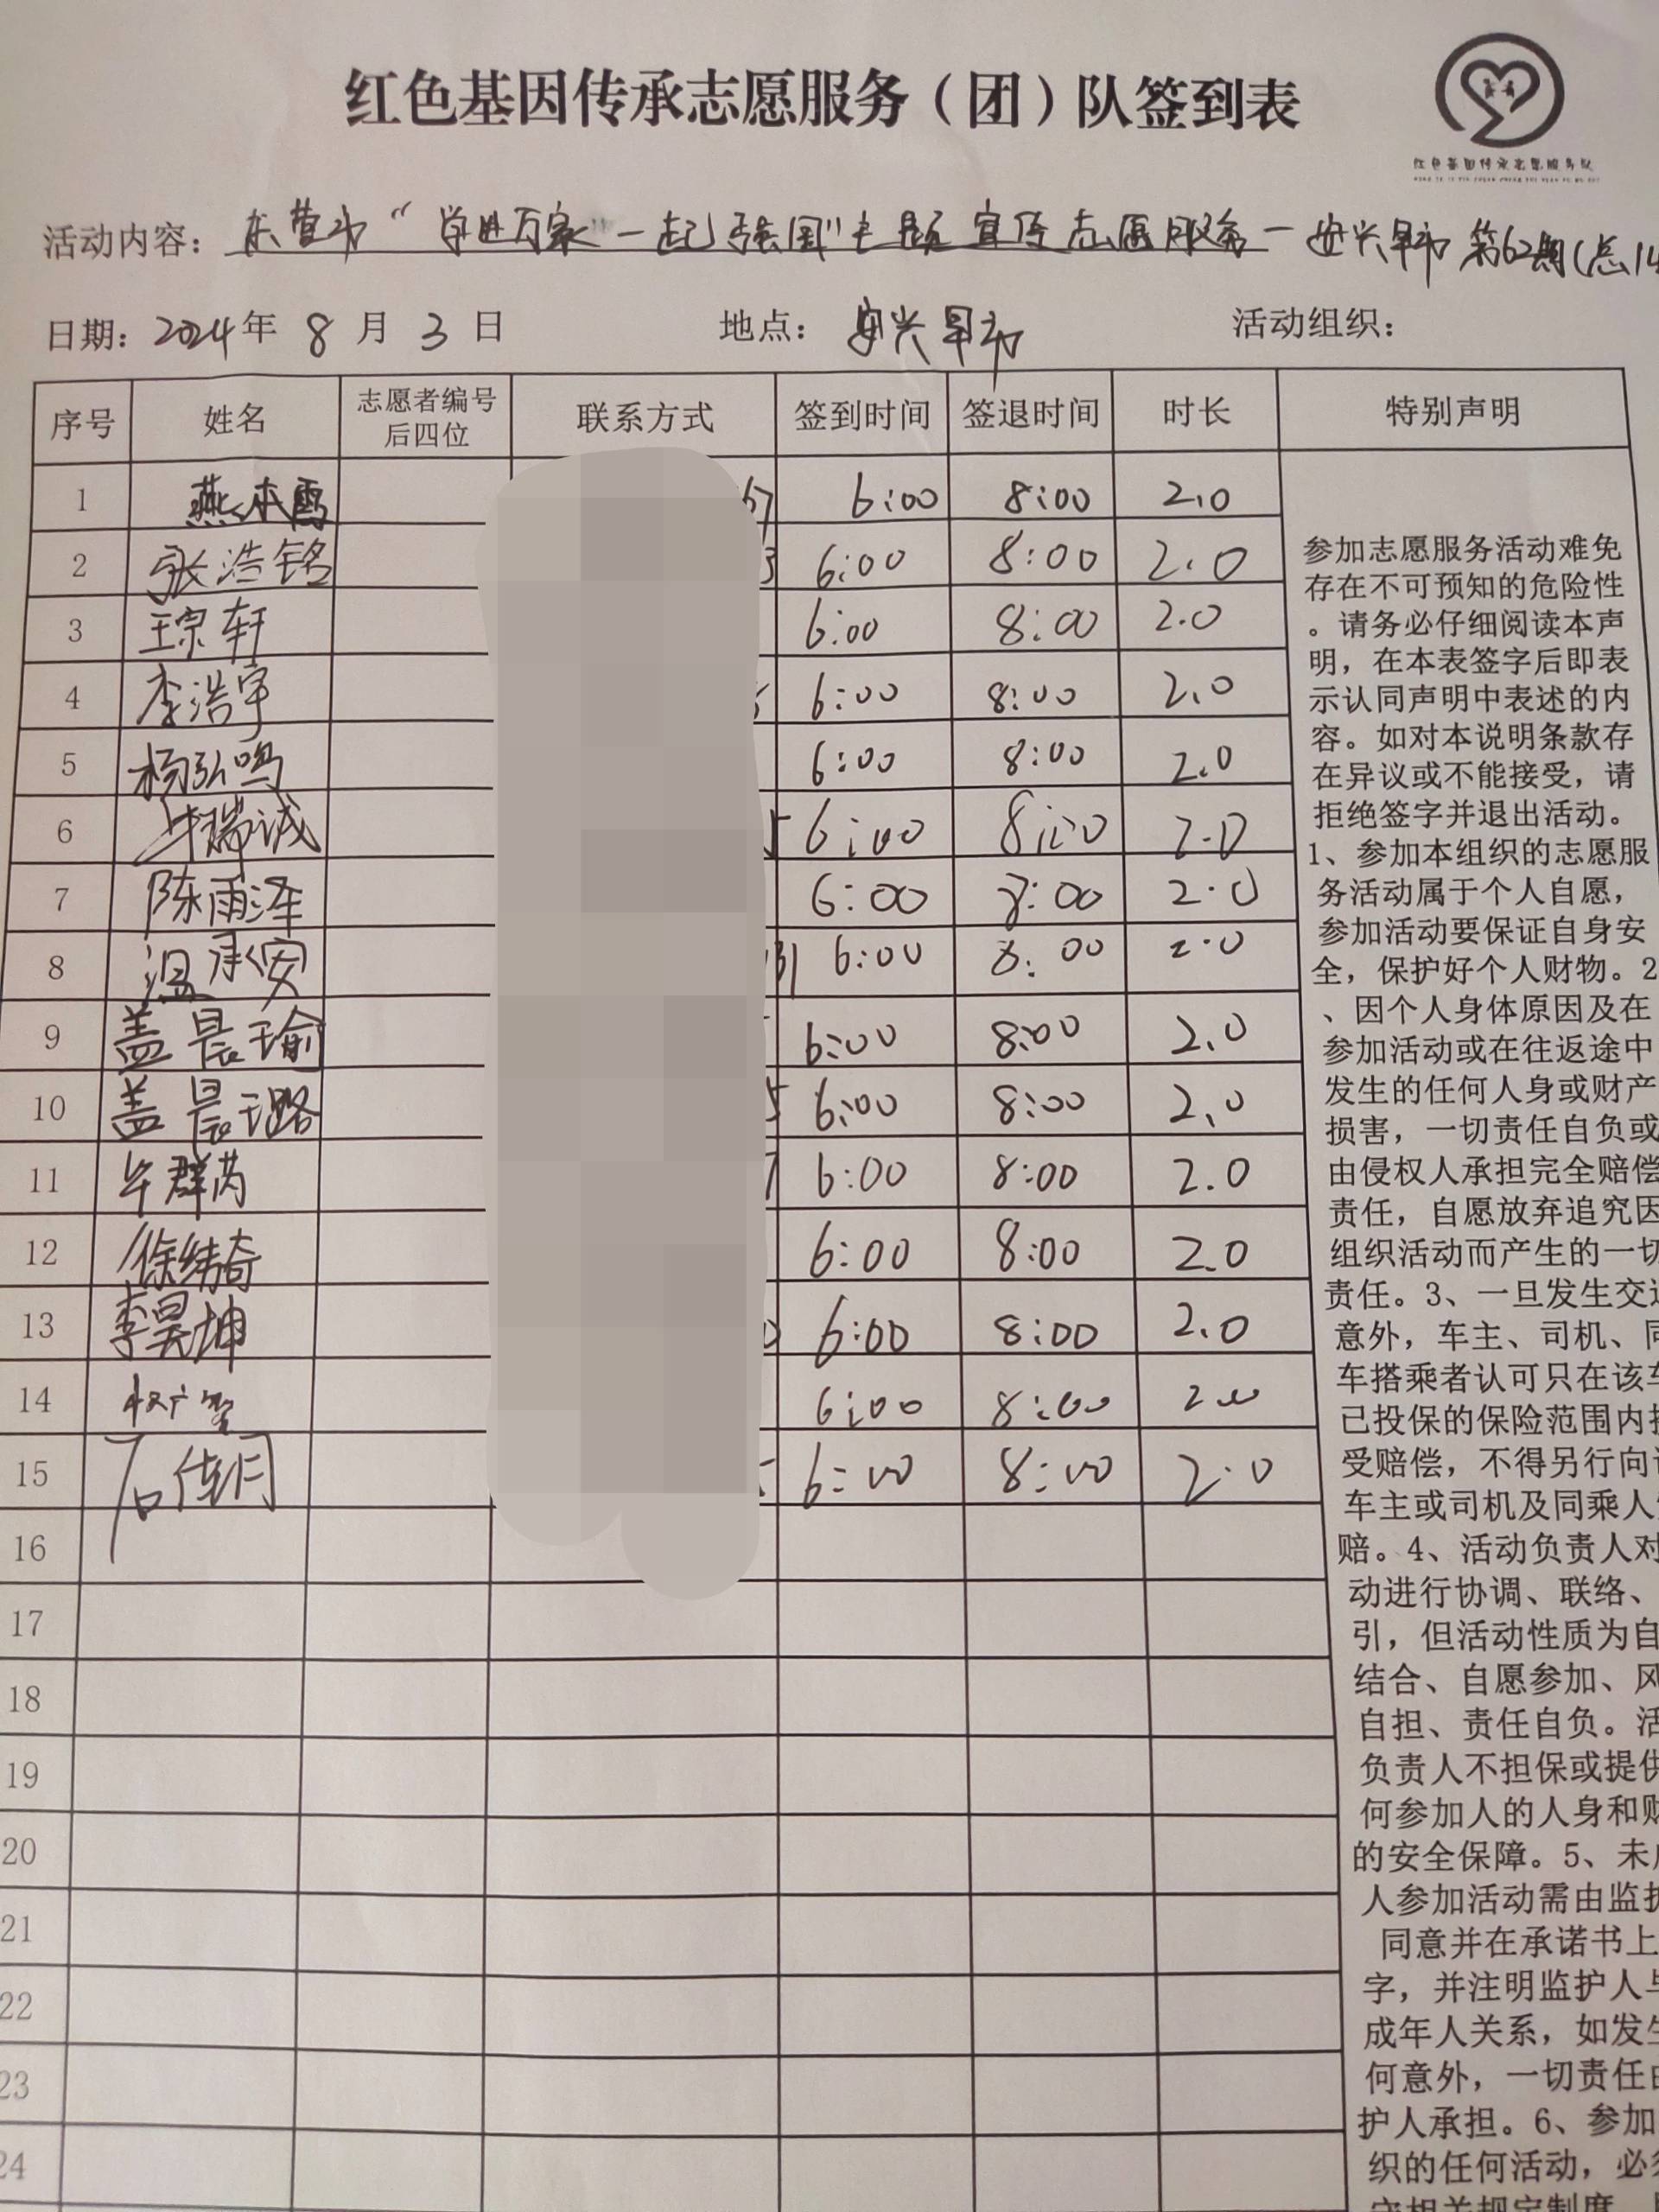 红色基因传承志愿服务（团）队签到表
红色基因传承志愿服务队
活动内容：东营市“学进万家 一起强国”主题宣传志愿服务－安兴早市 第62期(总14
日期：2024年 8 月 3 日 地点：安兴早市 活动组织：
序号 姓名 志愿者编号后四位 联系方式 签到时间 签退时间 时长 特别声明
1 燕本 67 6:00 8:00 2.0
2 张浩铭 3 6:00 8:00 2.0
3 王琮轩 6:00 8:00 2.0
4 李浩宇 5 6:00 8:00 2.0
5 杨弘鸣 6:00 8:00 2.0
6 牛瑞诚 5 6:00 8:00 2.0
7 陈雨泽 6:00 8:00 2.0
8 温承安 31 6:00 8:00 2.0
9 盖晨瑜 6:00 8:00 2.0
10 盖晨璐 5 6:00 8:00 2.0
11 毕群芮 7 6:00 8:00 2.0
12 徐绮 6:00 8:00 2.0
13 李昊坤 0 6:00 8:00 2.0
14 6:00 8:00 2.0
15 石佳月 6:00 8:00 2.0
16
17
18
19
20
21
22
23
24
参加志愿服务活动难免
存在不可预知的危险性
。请务必仔细阅读本声
明，在本表签字后即表
示认同声明中表述的内
容。如对本说明条款存
在异议或不能接受，请
拒绝签字并退出活动。
1、参加本组织的志愿服
务活动属于个人自愿，
参加活动要保证自身安
全，保护好个人财物。2
、因个人身体原因及在
参加活动或在往返途中
发生的任何人身或财产
损害，一切责任自负或
由侵权人承担完全赔偿
责任，自愿放弃追究因
组织活动而产生的一切
责任。3、一旦发生交
意外，车主、司机、同
车搭乘者认可只在该车
已投保的保险范围内
受赔偿，不得另行向
车主或司机及同乘人
赔。4、活动负责人对
动进行协调、联络、
引，但活动性质为自
结合、自愿参加、风
自担、责任自负。活
负责人不担保或提供
何参加人的人身和财
的安全保障。5、未
人参加活动需由监护
同意并在承诺书上
字，并注明监护人与
成年人关系，如发生
何意外，一切责任由
护人承担。6、参加
织的任何活动，必须
守相关规定制度